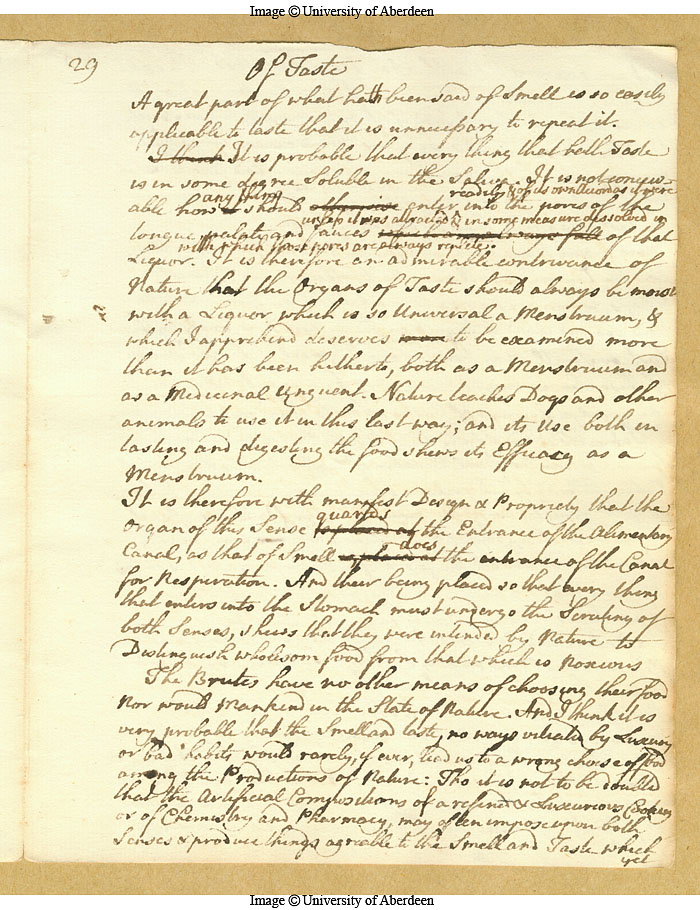 Image © University of Aberdeen
29
Of Taste
A great part of what hath been said of Smell is so easily
applicable to taste that it is unnecessary to repeat it.
I think It is probable that every thing that hath Taste
is in some degree Soluble in the Saliva. It is not conceiv-
any thing readily & of its own accord as it were
able how it should otherwise enter into the pores of the
unless it was attracted & in some measure dissolved in
tongue palate and fauces of that
with which those pores are always replete.
Liquor. It is therefore an admirable contrivance of
Nature that the Organs of Taste should always be moist
with a Liquor which is so Universal a Menstruum, &
which I apprehend deserves more to be examined more
than it has been hitherto, both as a Menstruum and
as a Medicinal Unguent. Nature teaches Dogs and other
animals to use it in this last way; and its Use both in
tasting and digesting the food shews its Efficacy as a
Menstruum.
It is therefore with manifest Design & Propriety that the
guards
Organ of this Sense is placed at the Entrance of the Alimentary
does
Canal, as that of Smell is placed at the entrance of the Canal
for Respiration. And their being placed so that every thing
that enters into the Stomach must undergo the Scrutiny of
both Senses, shews that they were intended by Nature to
Distinguish wholesom food from that which is Noxious
The Brutes have no other means of choosing their food
Nor would Mankind in the State of Nature. And I think it is
very probable that the Smell and taste, no ways vitiated by Luxury
or bad habits would rarely, if ever, lead us to a wrong choise of food
among the Productions of Nature: Tho it is not to be doubted
that the Artificial Compositions of a refined & Luxurious Cookery
or of Chemistry and Pharmacy, may often impose upon both
Senses & produce things agreable to the Smell and Taste which
yet
Image © University of Aberdeen